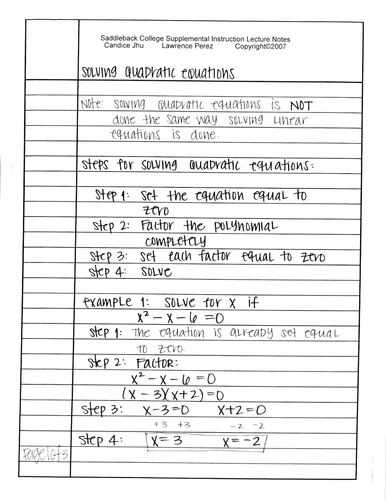 Saddleback College Supplemental Instruction Lecture Notes
Candice Jhu Lawrence Perez Copyright©2007
Solving Quadratic Equations
Note: Solving Quadratic Equations is NOT
done the same way solving linear
equations is done.
Steps for Solving Quadratic Equations:
Step 1: Set the equation equal to
zero
Step 2: Factor the polynomial
completely
Step 3: Set each factor equal to zero
Step 4: Solve
Example 1: Solve for x if
x² - x - 6 = 0
Step 1: The equation is already set equal
to zero.
Step 2: Factor:
x² - x - 6 = 0
(x - 3)(x + 2) = 0
Step 3: x - 3 = 0 x + 2 = 0
+3 +3 -2 -2
Step 4: x = 3 x = -2
Page 1 of 3